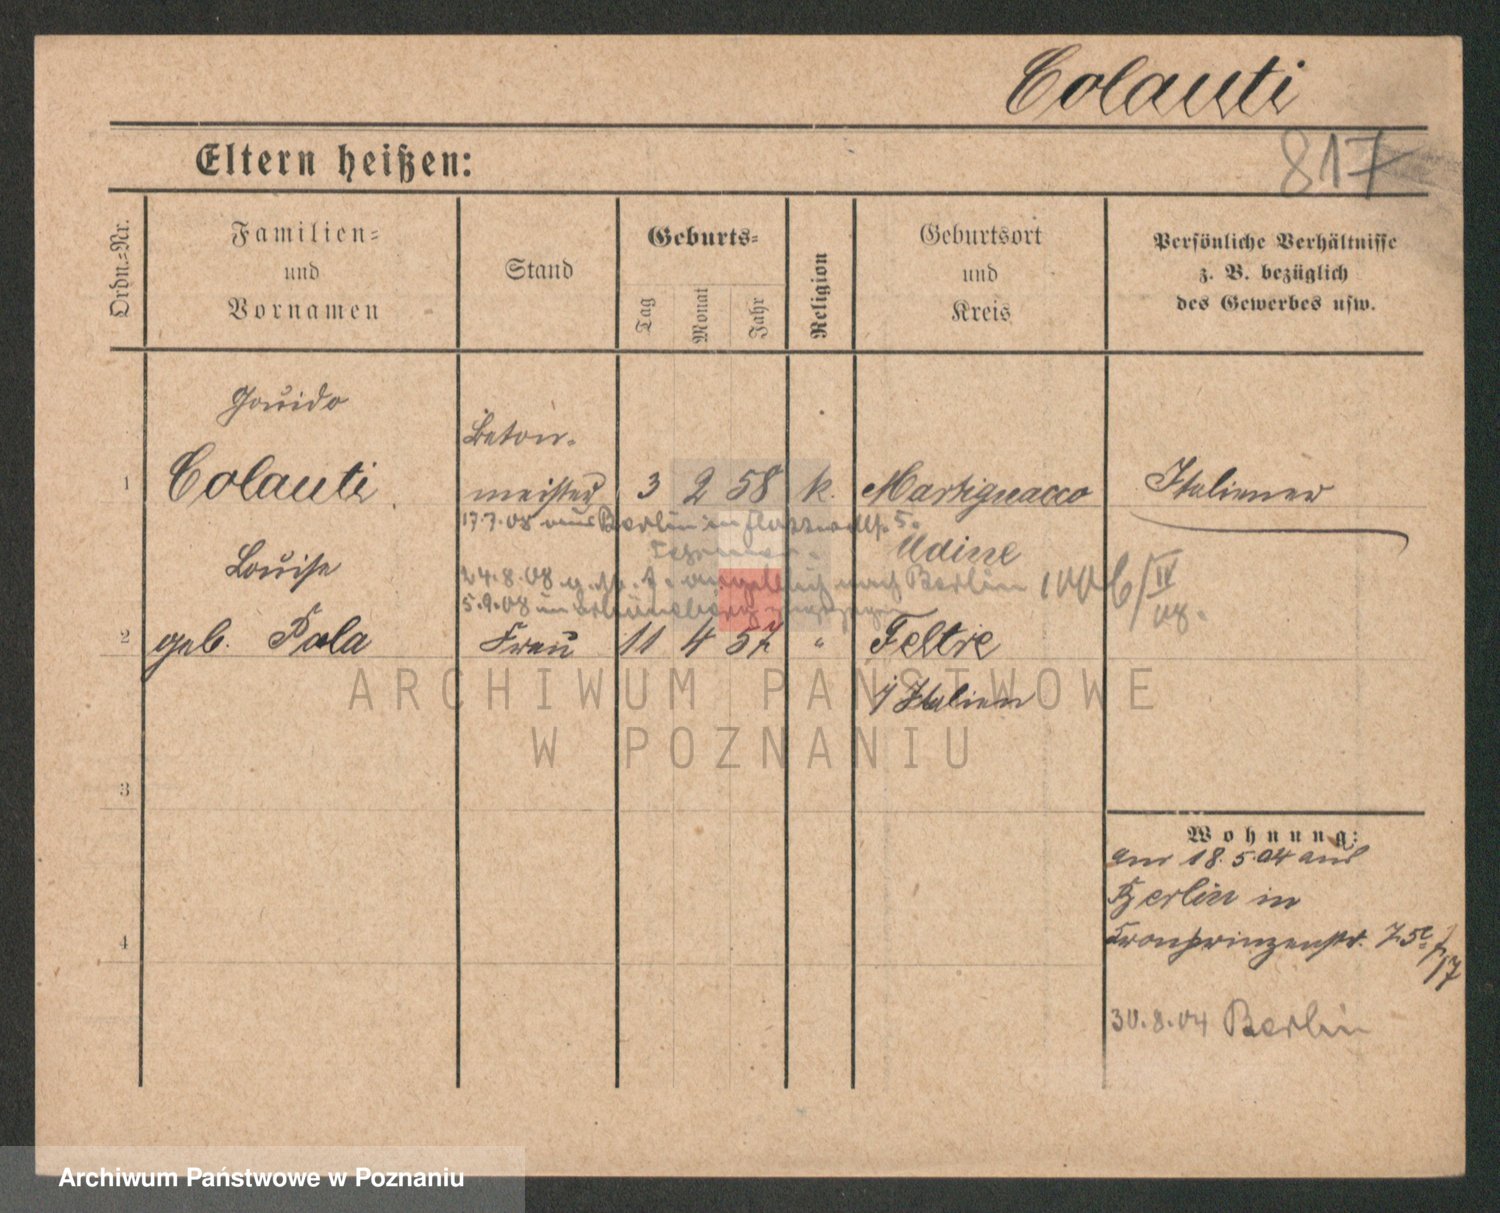 Colauti
817
Eltern heißen:
Ordn.=Nr.
Familien=
und
Vornamen
Stand
Geburts=
Tag
Monat
Jahr
Religion
Geburtsort
und
Kreis
Persönliche Verhältnisse
z. B. bezüglich
des Gewerbes usw.
Gouido
Beton-
1 Colauti meister 3 2 58 k. Martignacco Italiener
17.7.08 aus Berlin in 5.
Udine
Louise
24.8.08 angeblich nach Berlin
5.9.08 in
2 geb. Pola Frau 11 4 57 " Feltre
i/Italien
ARCHIWUM PAŃSTWOWE
W POZNANIU
3
Wohnung:
am 18.5.04 aus
Berlin in
4 Kronprinzenstr.
30.8.04 Berlin
Archiwum Państwowe w Poznaniu